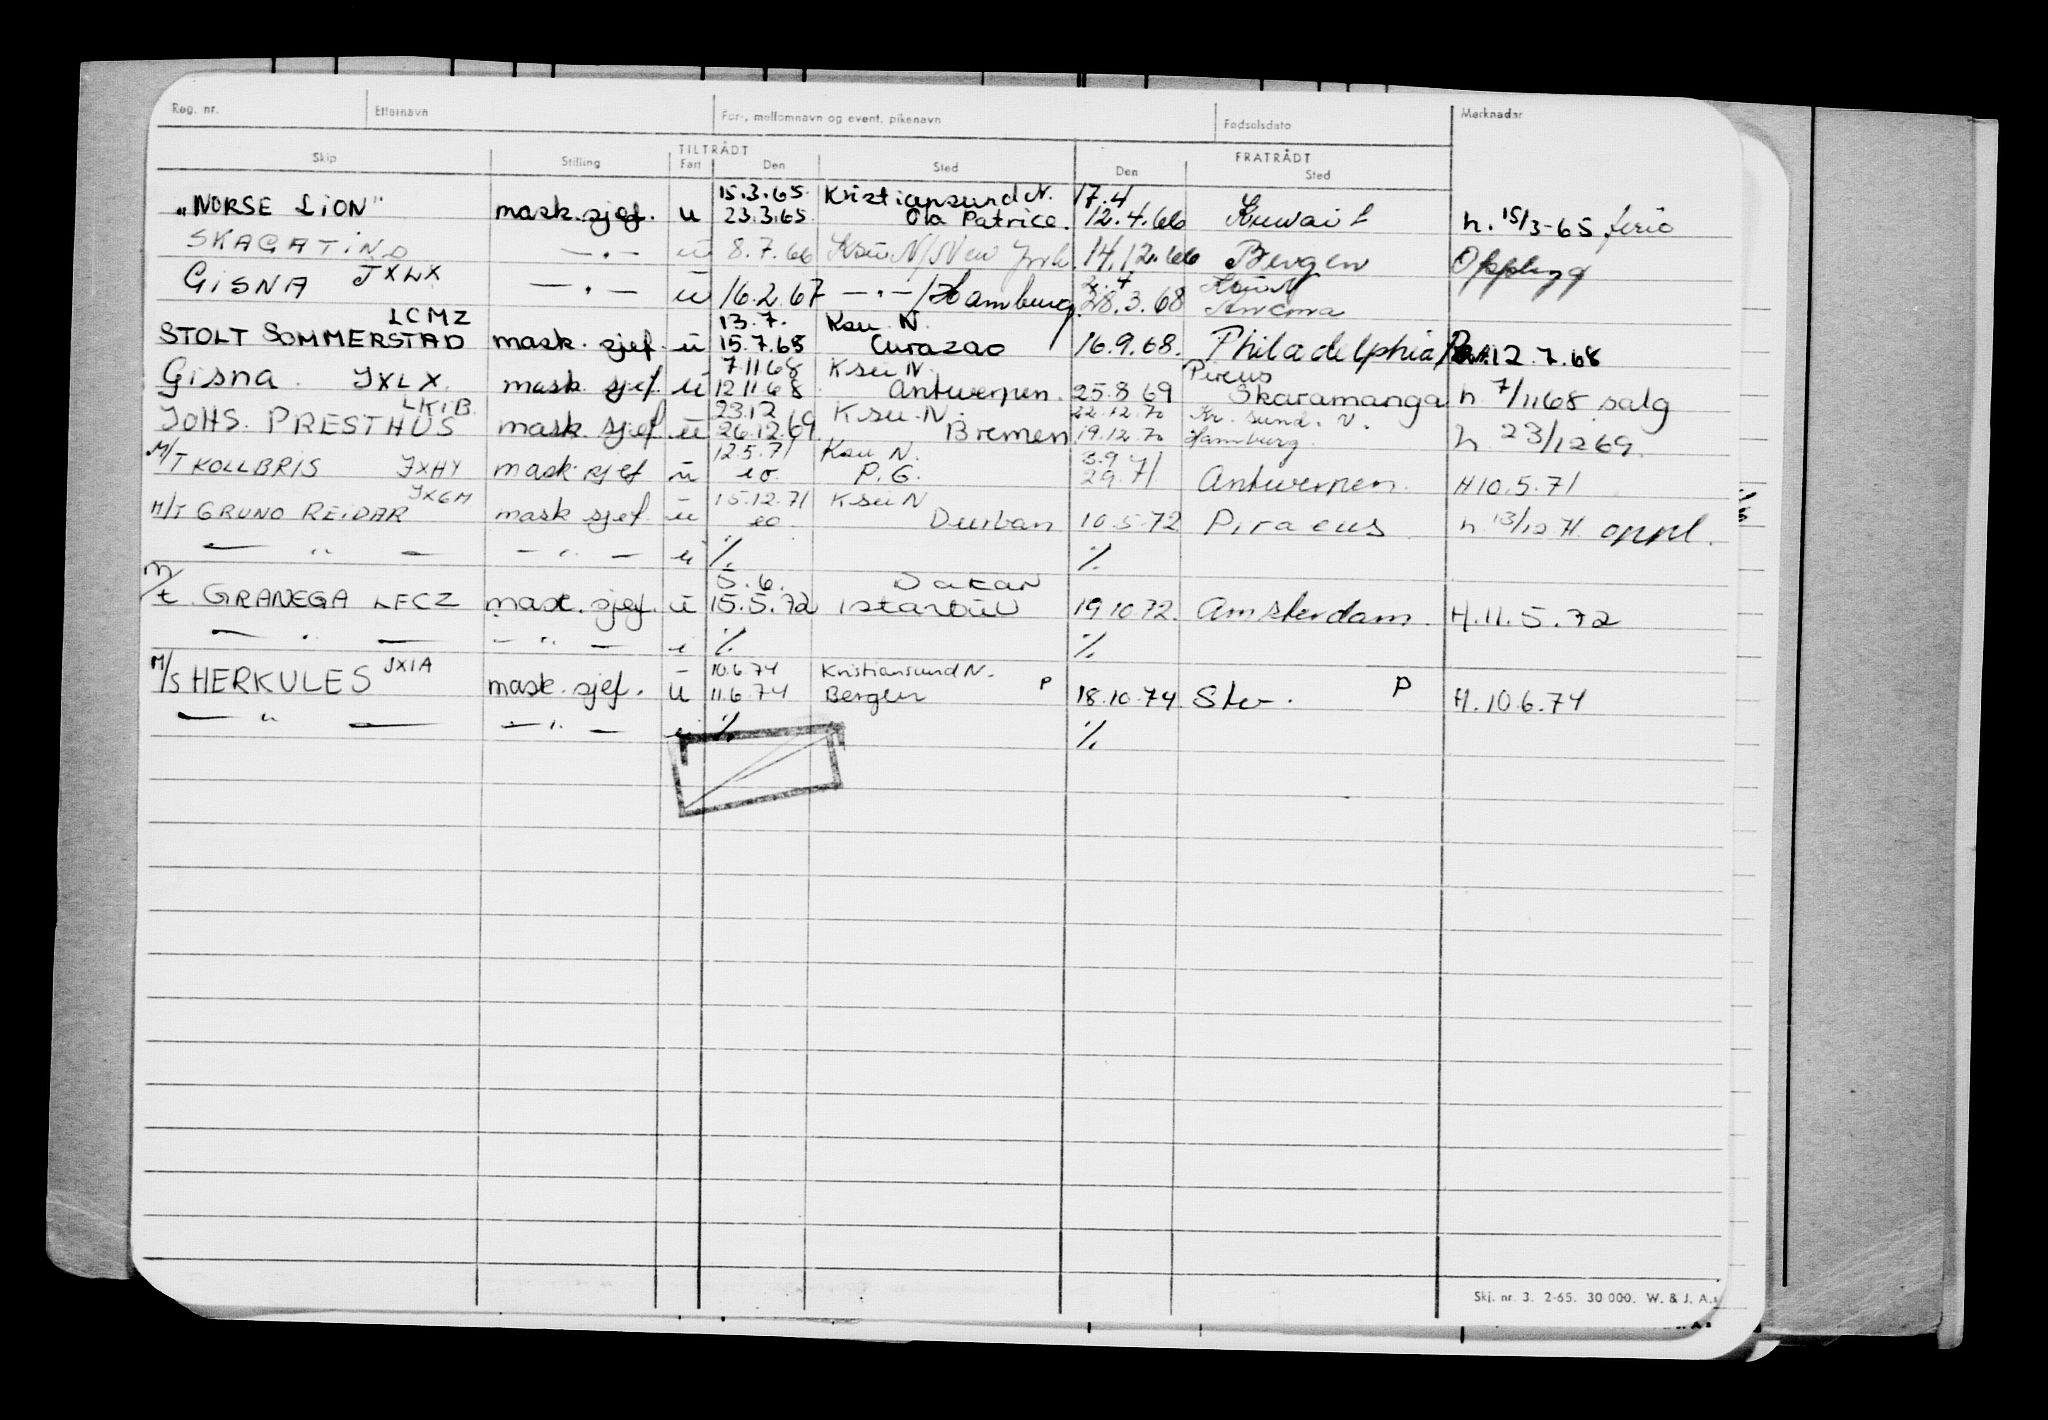 Reg. nr. Etternavn For-, mellomnavn og event. pikenavn Fødselsdato Merknader
TILTRÅDT FRATRÅDT
Skip Stilling Fart Den Sted Den Sted
15.3.65 Kristiansund N. 17.4
"NORSE LION" mask.sjef. u 23.3.65 Ola Patrice. 12.4.66 Kuwait h. 15/3-65 ferie
SKAGATIND —"— u 8.7.66 Ksu N/New York. 14.12.66 Bergen Opplegg
2.4 Ksu N
GISNA JXLX —"— u 16.2.67 —"—/Hamburg. 28.3.68 Ancona
LCMZ 13.7. Ksu. N.
STOLT SOMMERSTAD mask. sjef. u 15.7.68 Curazao 16.9.68. Philadelphia 12.7.68
7.11.68 Ksu N. Pireus
Gisna. JXLX. mask. sjef. u 12.11.68 Antwerpen. 25.8 69 Skaramanga h 7/11 68 salg
LKIB. 23.12 Ksu. N. 22.12.70 Kr. sund. N.
JOHS. PRESTHUS mask. sjef. u 26.12.69. Bremen 19.12.70 Hamburg. h. 23/12 69.
12.5.71 Ksu N. 3.9
M/T KOLLBRIS JXHY mask. sjef u eo. P.G. 29. 71 Antwerpen. H 10.5.71
JXGM 15.12.71 Ksu N
M/T GRUNO REIDAR mask sjef. u eo. Durban 10.5.72 Piraeus. h 13/12 71. oppl.
— " — — " — u %. %.
5.6. Dakar
M/t. GRANEGA LECZ mask. sjef. u 15.5.72 Istanbul 19.10.72. Amsterdam. H.11.5.72
— " — — " — u %. %.
JXIA 10.6.74 Kristiansund N.
M/S HERKULES mask. sjef. u 11.6.74 Bergen P 18.10.74 Stv. P H.10.6.74
— " — — " — u %. %.
Skj. nr. 3. 2-65. 30 000. W. & J. A.s